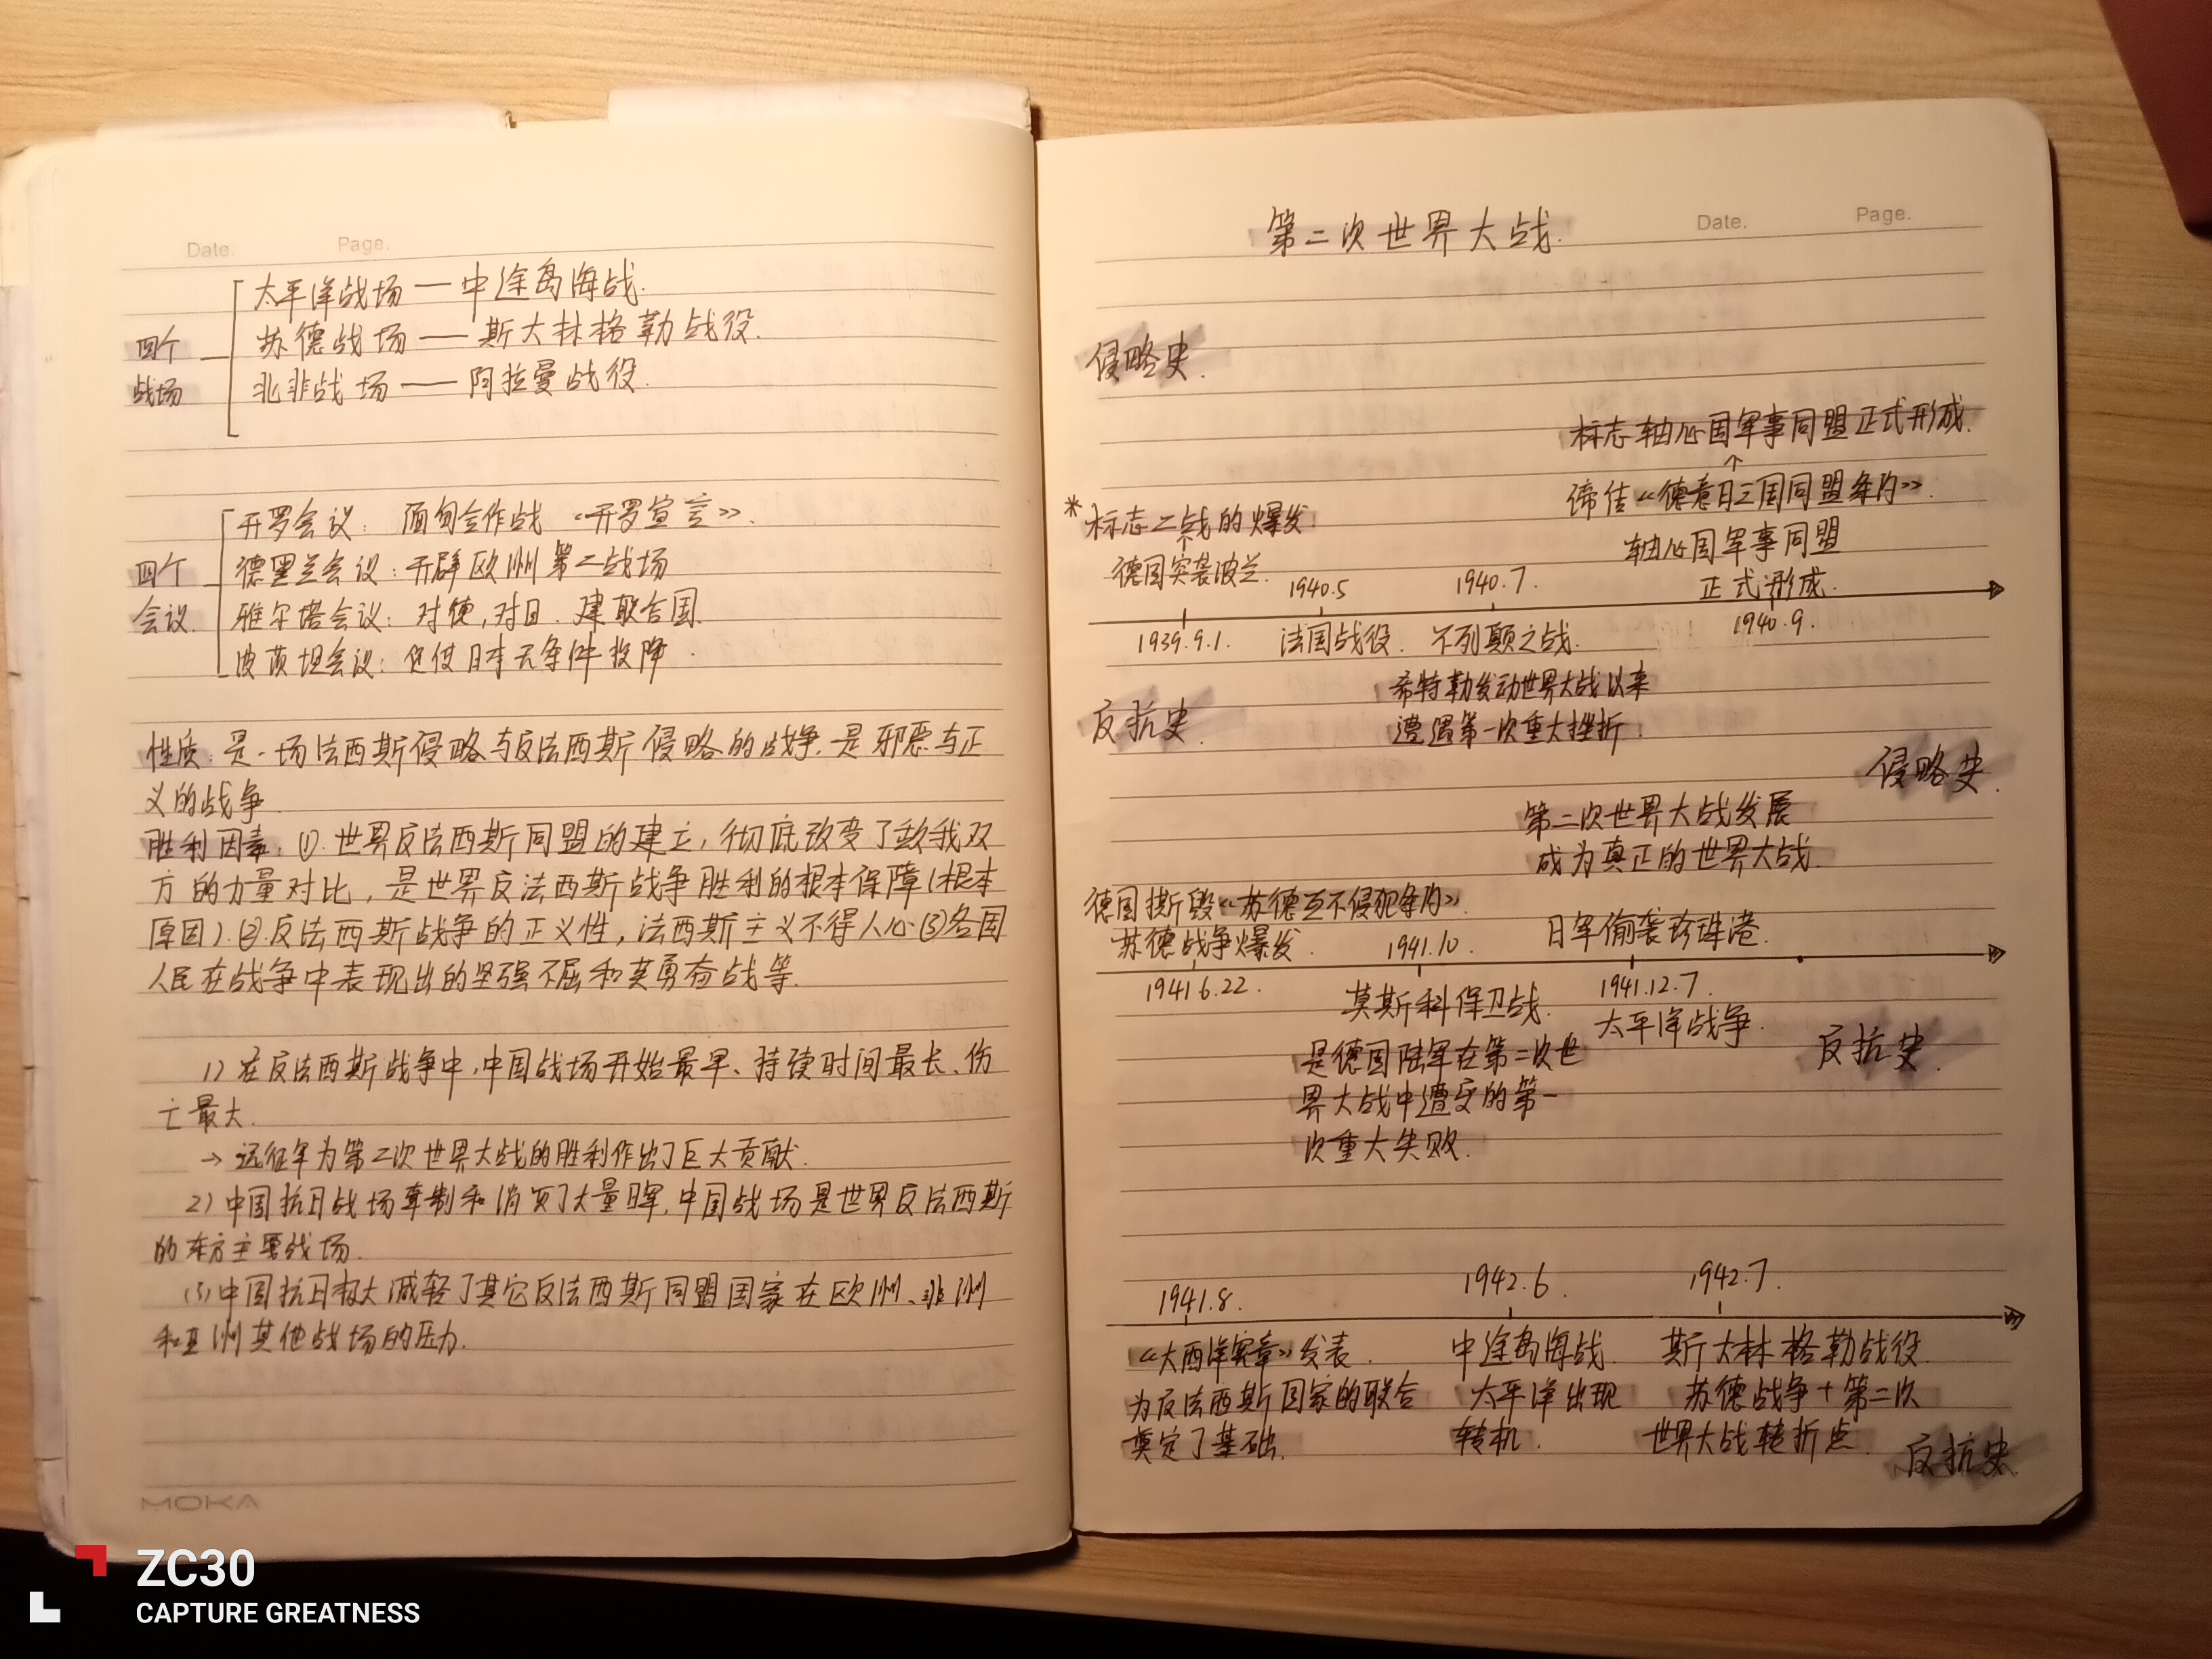 Date. Page.
太平洋战场 — 中途岛海战.
四个 苏德战场 — 斯大林格勒战役.
战场 北非战场 — 阿拉曼战役.
开罗会议: 合作战 《开罗宣言》.
四个 德黑兰会议: 开辟欧洲第二战场
会议. 雅尔塔会议: 对德, 对日. 建联合国.
波茨坦会议: 促使日本无条件投降.
性质: 是一场法西斯侵略与反法西斯侵略的战争. 是邪恶与正
义的战争.
胜利因素: ①. 世界反法西斯同盟的建立, 彻底改变了敌我双
方的力量对比, 是世界反法西斯战争胜利的根本保障(根本
原因). ②. 反法西斯战争的正义性, 法西斯主义不得人心. ③各国
人民在战争中表现出的坚强不屈和英勇奋战等.
1) 在反法西斯战争中, 中国战场开始最早、持续时间最长、伤
亡最大.
→ 远征军为第二次世界大战的胜利作出了巨大贡献.
2) 中国抗日战场牵制和消灭了大量日军, 中国战场是世界反法西斯
的东方主要战场.
(3) 中国抗日极大减轻了其它反法西斯同盟国家在欧洲、非洲
和亚洲其他战场的压力.
MOKA
第二次世界大战. Date. Page.
侵略史.
标志轴心国军事同盟正式形成.
↑
缔结《德意日三国同盟条约》.
*标志二战的爆发. 轴心国军事同盟
↑
德国突袭波兰. 1940.5 1940.7. 正式形成.
1939.9.1. 法国战役. 不列颠之战. 1940.9.
希特勒发动世界大战以来
反抗史. 遭遇第一次重大挫折.
侵略史.
第二次世界大战发展
成为真正的世界大战.
德国撕毁《苏德互不侵犯条约》.
苏德战争爆发. 1941.10. 日军偷袭珍珠港.
1941.6.22. 莫斯科保卫战. 1941.12.7.
太平洋战争.
是德国陆军在第二次世 反抗史.
界大战中遭受的第一
次重大失败.
1941.8. 1942.6. 1942.7.
《大西洋宪章》发表. 中途岛海战. 斯大林格勒战役.
为反法西斯国家的联合 太平洋出现 苏德战争+第二次
奠定了基础. 转机. 世界大战转折点. 反抗史.
ZC30
CAPTURE GREATNESS